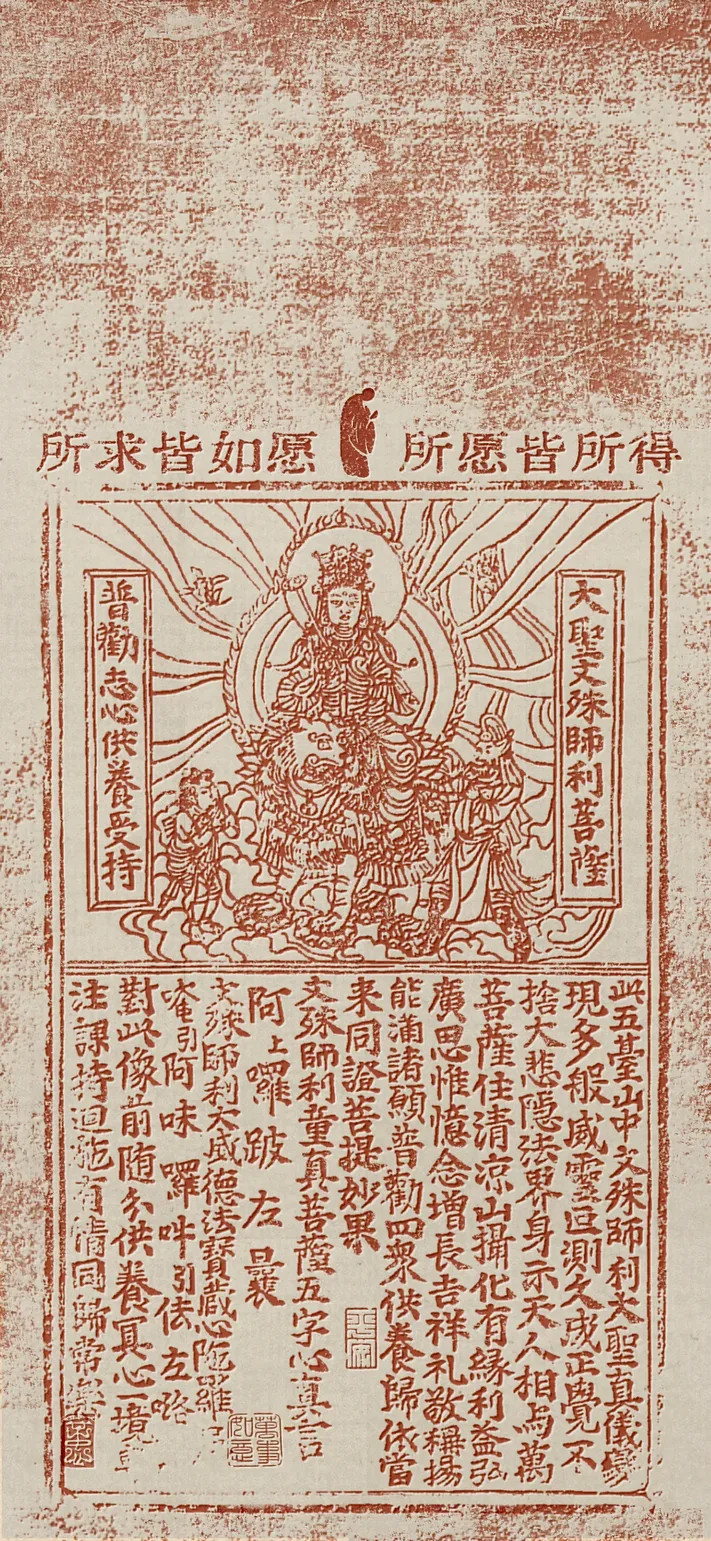 所求皆如愿
所愿皆所得
大聖文殊師利菩薩
普勸志心供養受持
此五臺山中文殊師利大聖真儀變
現多般威靈叵測久成正覺不
捨大悲隱法界身示天人相与萬
菩薩住清凉山攝化有緣利益弘
廣思惟憶念增長吉祥礼敬稱揚
能滿諸願普勸四衆供養歸依當
来同證菩提妙果
文殊師利童真菩薩五字心真言
阿上囉跛左曩
文殊師利大威德法寶藏心陁羅
唵引阿味囉吽引佉左
對此像前随分供養冥心一境
注課持迴施有情同歸常
平安
萬事如意